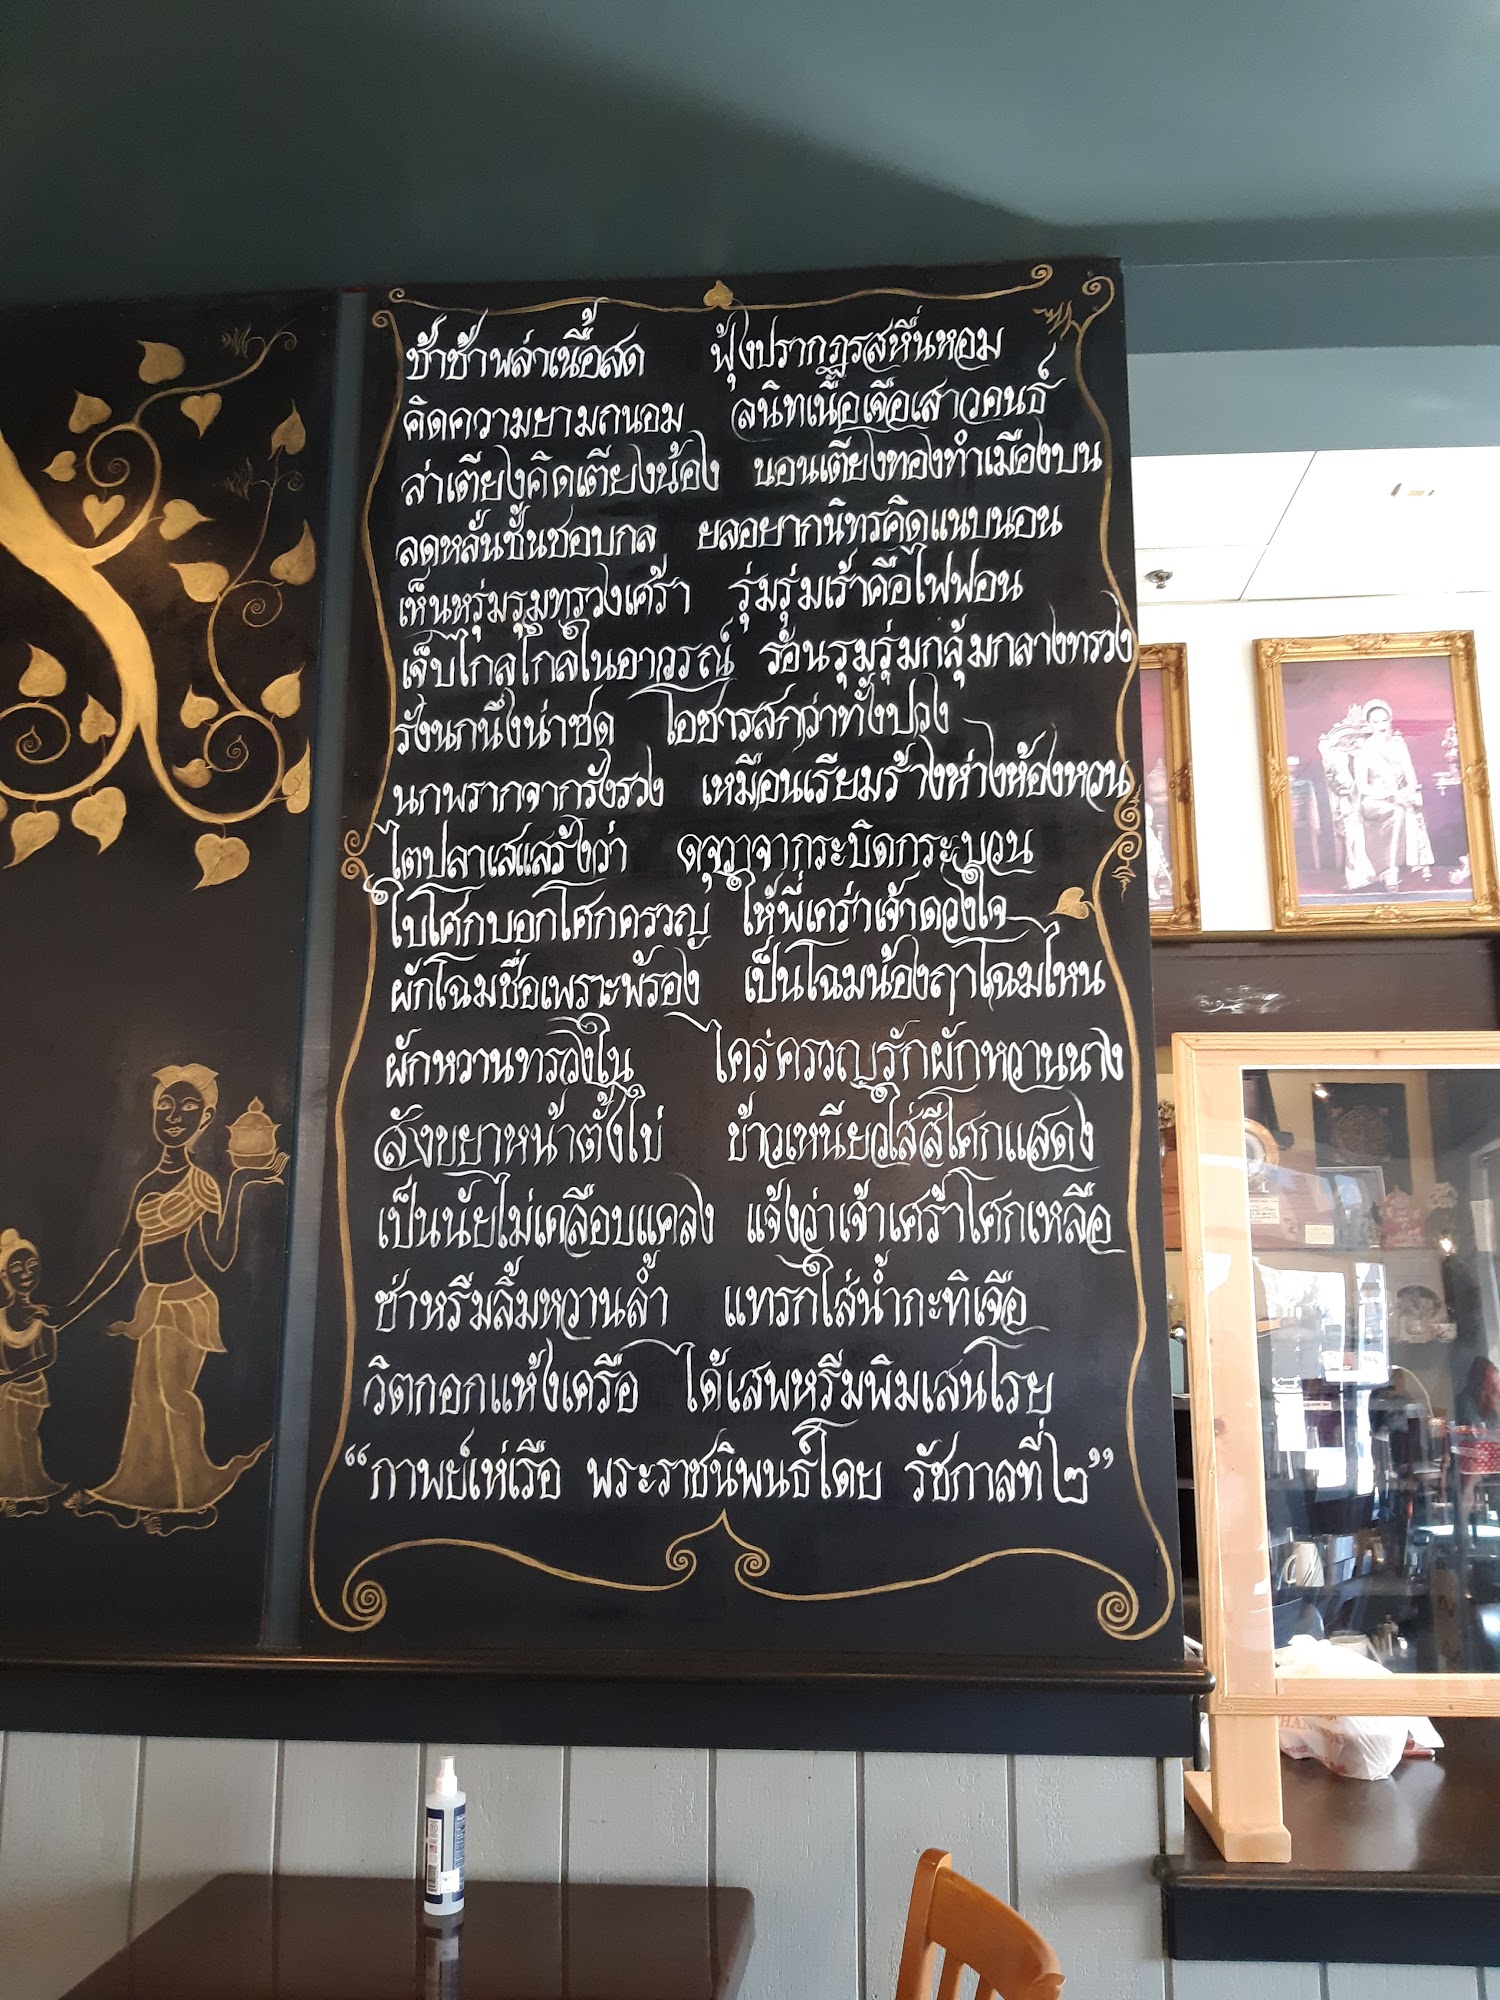 ช้าช้าพล่าเนื้อสด ฟุ้งปรากฏรสหื่นหอม
คิดความยามถนอม สนิทเนื้อเจือเสาวคนธ์
ล่าเตียงคิดเตียงน้อง นอนเตียงทองทำเมืองบน
ลดหลั่นชั้นชอบกล ยลอยากนิทรคิดแนบนอน
เห็นหรุ่มรุมทรวงเศร้า รุ่มรุ่มเร้าคือไฟฟอน
เจ็บไกลใกลในอาวรณ์ ร้อนรุมรุ่มกลุ้มกลางทรวง
รังนกนึ่งน่าซด โอชารสกว่าทั้งปวง
นกพรากจากรังรวง เหมือนเรียมร้างห่างห้องหวน
ไตปลาเสแสร้งว่า ดุจวาจากระบิดกระบวน
ใบโศกบอกโศกครวญ ให้พี่เคร่าเจ้าดวงใจ
ผักโฉมชื่อเพราะพร้อง เป็นโฉมน้องฤาโฉมไหน
ผักหวานทรวงใน ใคร่ครวญรักผักหวานนาง
สังขยาหน้าตั้งไข่ ข้าวเหนียวใส่สีโศกแสดง
เป็นนัยไม่เคลือบแคลง แจ้งว่าเจ้าเศร้าโศกเหลือ
ซ่าหรีมลิ้มหวานล้ำ แทรกใส่น้ำกะทิเจือ
วิตกอกแห้งเครือ ได้เสพหรีมพิมเสนโรย
“กาพย์เห่เรือ พระราชนิพนธ์โดย รัชกาลที่๒”